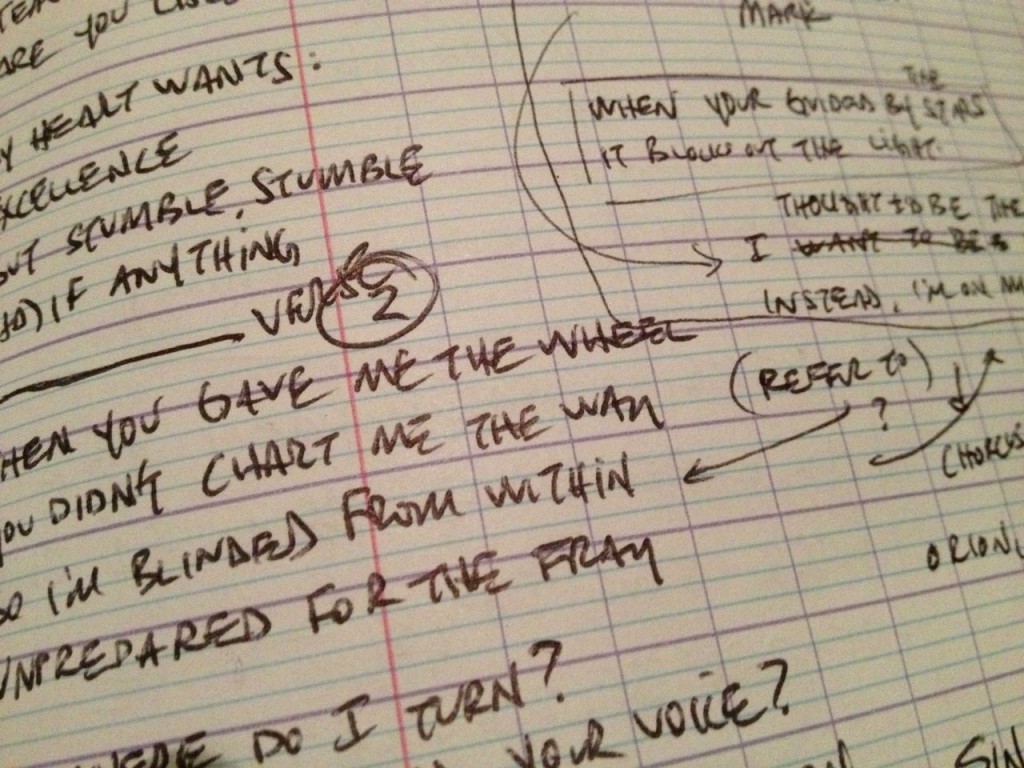 ARE YOU
HEART WANTS:
EXCELLENCE
BUT STUMBLE, STUMBLE
IF ANYTHING
VERSE 2
WHEN YOU GAVE ME THE WHEEL
YOU DIDN'T CHART ME THE WAY
SO I'M BLINDED FROM WITHIN
UNPREPARED FOR THE FRAY
WHERE DO I TURN?
YOUR VOICE?
MARK
THE
WHEN YOUR GUIDED BY STARS
IT BLOCKS OUT THE LIGHT.
THOUGHT TO BE THE
I WANT TO BE
INSTEAD, I'M
(REFER TO)
?
CHORUS
ORION
SIN